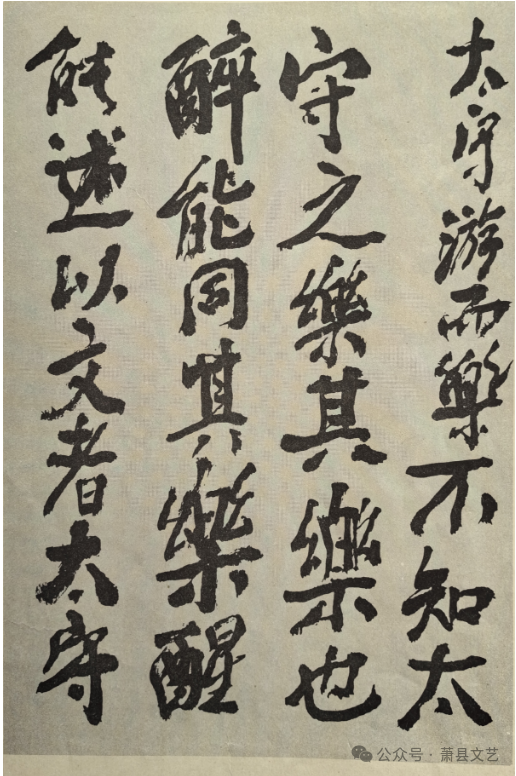 太守游而樂不知太
守之樂其樂也
醉能同其樂醒
能述以文者太守
公众号·萧县文艺